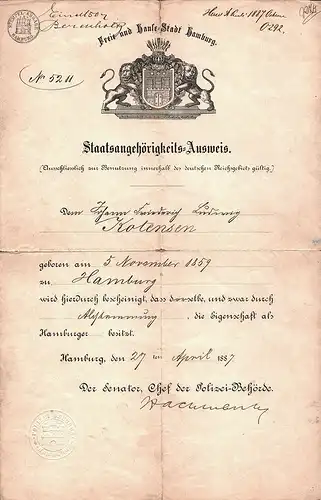 Freie und Hanse-Stadt Hamburg.
No 5211
Staatsangehörigkeits-Ausweis.
(Ausschliesslich zur Benutzung innerhalb des deutschen Reichsgebiets gültig.)
Dem Johann Friederich Ludwig
Kotensen
geboren am 5 November 1859
zu Hamburg
wird hierdurch bescheinigt, dass derselbe, und zwar durch
Abstammung, die Eigenschaft als
Hamburger besitzt.
Hamburg, den 27 ten April 1887.
Der Senator, Chef der Polizei-Behörde.